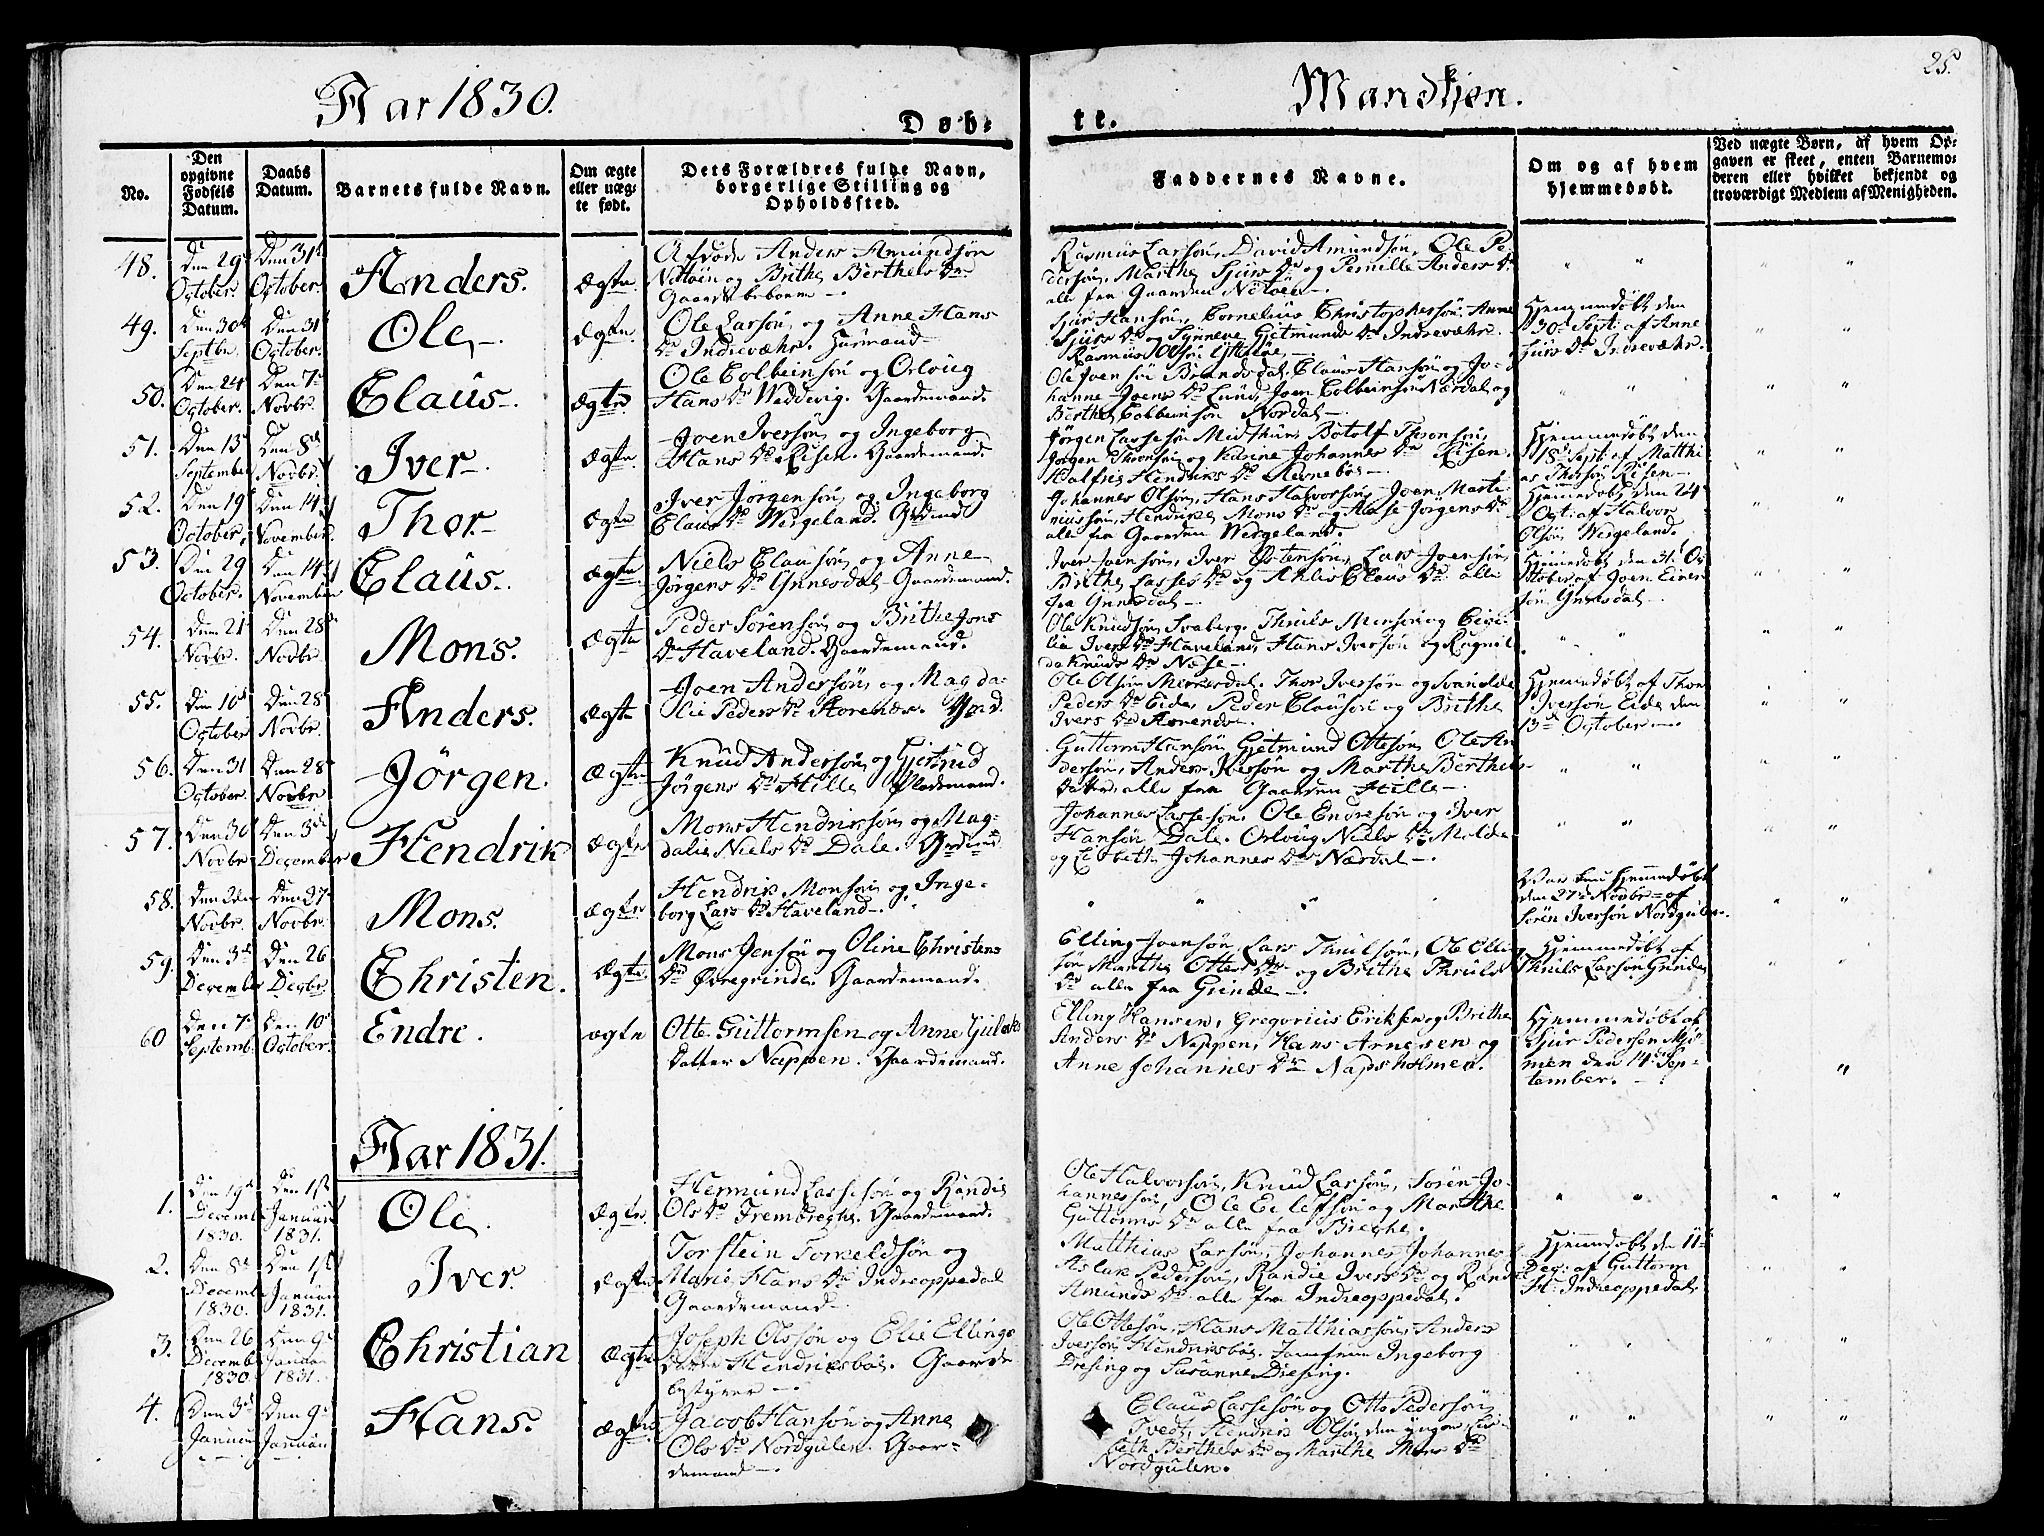 25.
Aar 1830.
Mandkjøn.
Døb-
te.
No.
Den opgivne Fødsels Datum.
Daabs Datum.
Barnets fulde Navn.
Om ægte eller uægte født.
Dets Forældres fulde Navn, borgerlige Stilling og Opholdssted.
Faddernes Navne.
Om og af hvem hjemmedøbt.
Ved uægte Børn, af hvem Opgaven er skeet, enten Barnemoderen eller hvilket bekjendt og troværdigt Medlem af Menigheden.
48.
Den 29
October.
Den 31
October.
Anders.
Ægte
Anders Amundsøn
og Brithe Berthels Dr
Rasmus Larsøn, David Amundsøn, Ole Pe-
dersøn, Marthe Sjurs Dr og Pernille Anders Dr
alle fra Gaarden
49.
Den 30
Septbr.
Den 31
October.
Ole.
Ægte.
Ole Larsøn og Anne Hans
Dr Indrevæhr. Huusmand
Sjur Hansøn, Cornelius Christophersøn, Anne
Sjurs Dr og Synneve Gjetmunds Dr Indrevæhr.
Rasmus Olsøn
Hjemmedøbt den
30 Sept: af Anne
Sjurs Dr Indrevæhr.
50.
Den 24
October.
Den 7
Novbr.
Claus.
Ægte
Ole Colbeinsøn og Orloug
Hans Dr Waddevig. Gaardemand.
Ole Joensøn Brandsdal, Claus Hansøn og Jo-
hanne Joens Dr Lund, Joen Colbeinsøn Nordal og
Berthe Colbeinsøn Nordal.
51.
Den 13
September
Den 8
Novbr.
Iver.
Ægte.
Joen Iversøn og Ingeborg
Hans Dr Risen. Gaardemand.
Jørgen Lassesøn Midthun, Botolf Thronsøn,
Jørgen Thronsøn og Karine Johannes Dr Risen.
Hendriks Dr
Hjemmedøbt den
18 Sept: af Matthi
as Thorsøn Risen
52.
Den 19
October.
Den 14
November.
Thor.
Ægte
Iver Jørgensøn og Ingeborg
Claus Dr Wergeland.
Johannes Olsøn, Hans Halvorsøn, Joen Marti
nussøn, Hendrike Mons Dr og Aase Jørgens Dr
alle fra Gaarden Wergeland.
Hjemmedøbt den 24
Oct: af Halvor
Olsøn Wergeland.
53.
Den 29
October.
Den 14
November
Claus.
Ægte.
Niels Claussøn og Anne
Jørgens Dr Ynnesdal Gaardemand.
Iver Joensøn, Iver Østensøn, Lars Joensøn,
Brithe Lasses Dr og Ahlis Claus Dr alle
fra Ynnesdal
Hjemmedøbt den 31 Oc
tober af Joen Einer
søn Ynnesdal
54.
Den 21
Novbr.
Den 28
Novbr.
Mons.
Ægte
Peder Sørensøn og Brithe Jons
Dr Haveland. Gaardemand.
Ole Knudsøn Svaberg, Thruls Monsøn og Ceci-
lia Ivers Dr Haveland, Hans Iversøn og Ragnil
da Knuds Dr Næse
55.
Den 10
October
Den 28
Novbr.
Anders.
Ægte
Joen Andersøn og Magda-
lie Peders Dr
Ole Olsøn Mirkesdal. Thor Iversøn og Svanilde
Peders Dr Eide, Peder Clausøn og Brithe
Ivers Dr
Hjemmedøbt af Thor
Iversøn Eide den
13 October
56.
Den 31
October.
Den 28
Novbr
Jörgen.
Ægte
Knud Andersøn og Gjertrud
Jörgens Dr Hille Pladsmand.
Guttorm Hansøn, Gjetmund Ottesøn, Ole An
dersøn, Anders Iversøn og Marthe Berthels
Datter, alle fra Gaarden Hille
57.
Den 30
Novbr
Den 3
December
Hendrik
Ægte
Mons Hendriksøn og Mag-
dalie Niels Dr Dale.
Johannes Lassesøn, Ole Endresøn og Iver
Hansøn Dale. Orloug Niels Dr Molde
og Lisbeth Johannes Dr Nordal
58.
Novbr.
Den 27
Novbr.
Mons.
Ægte
Hendrik Monsøn og Inge-
borg Lars Dr Haveland
Var kun Hjemmedøbt
den 27 Novbr af
Søren Iversøn Nordgulen
59.
Den 3
December
Den 26
Decbr.
Christen.
Ægte.
Mons Jensøn og Oline Christens
Dr Øvregrinde. Gaardemand.
Elling Joensøn, Lars Thrulsøn, Ole Elling
søn Marthe Ottes Dr og Brithe Thruls
Dr alle fra Grinde
Hjemmedøbt af
Thruls Larsøn Grinde
60
Den 7
Septemb.
Den 10
October.
Endre.
ægte
Otte Guttormsen og Anne
Datter Nappen. Gaardemand.
Elling Hansen, Gregorius Eriksen og Brithe
Anders Dr Nappen, Hans Arnesen og
Anne Johannes Dr Napsholmen.
Hjemmedøbt af
Sjur Pedersen Mjø
men den 14 Sep-
tember.
Aar 1831.
1.
Den 19
Decemb.
1830.
Den 1st
Januar
1831.
Ole.
Ægte.
Hermund Lassesøn og Randi
Ols Dr Frembreche. Gaardemand.
Ole Halvorsøn, Knud Larsøn, Søren Jo-
hannessøn, Ole Eilefsøn og Marthe
Guttorms Dr alle fra Breche.
2.
Den 8
Decemb.
1830.
Den 1st
Januar
1831.
Iver
Ægte
Torstein Torkeldsøn og
Marie Hans Dr Indreoppedal
Gaardemand.
Matthias Larsøn, Johannes Johannes
Aslak Pedersøn, Randie Ivers Dr og Randi
Amunds Dr alle fra Indreoppedal.
Hjemmedøbt den 11
Dec: af Guttorm
H: Indreoppedal.
3.
Den 26
Decemb
1830
Den 9
Januar
1831.
Christian
Ægte
Joseph Olssøn og Elie Ellings
Datter Hendriksbøe. Gaards
bestyrer
Ole Ottesøn, Hans Matthiassøn, Anders
Iversøn Hendriksbøe. Jomfrue Ingeborg
Dresing og Susanne Dresing.
4.
Den 3
Januar
Den 9
Januar
Hans.
Ægte
Jacob Hansøn og Anne
Ols Dr Nordgulen. Gaar-
demand
Claus Lassesøn og Otto Pedersøn
Tvedt, Hendrik Olsøn den yngre, Lis-
beth Berthels Dr og Marthe Mons Dr
Nordgulen.